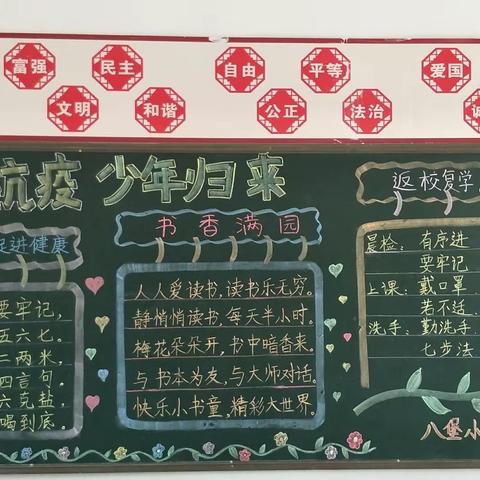 富强
民主
自由
平等
爱国
文明
和谐
公正
法治
抗疫 少年归来
促进健康
要牢记，
五六七。
二两米，
四言句，
六克盐
喝到底。
书香满园
人人爱读书，读书乐无穷。
静悄悄读书，每天半小时。
梅花朵朵开，书中暗香来。
与书本为友，与大师对话。
快乐小书童，精彩大世界。
返校复学
晨检：有序进
要牢记
上课：戴口罩
若不适
洗手：勤洗手
七步法
八堡小